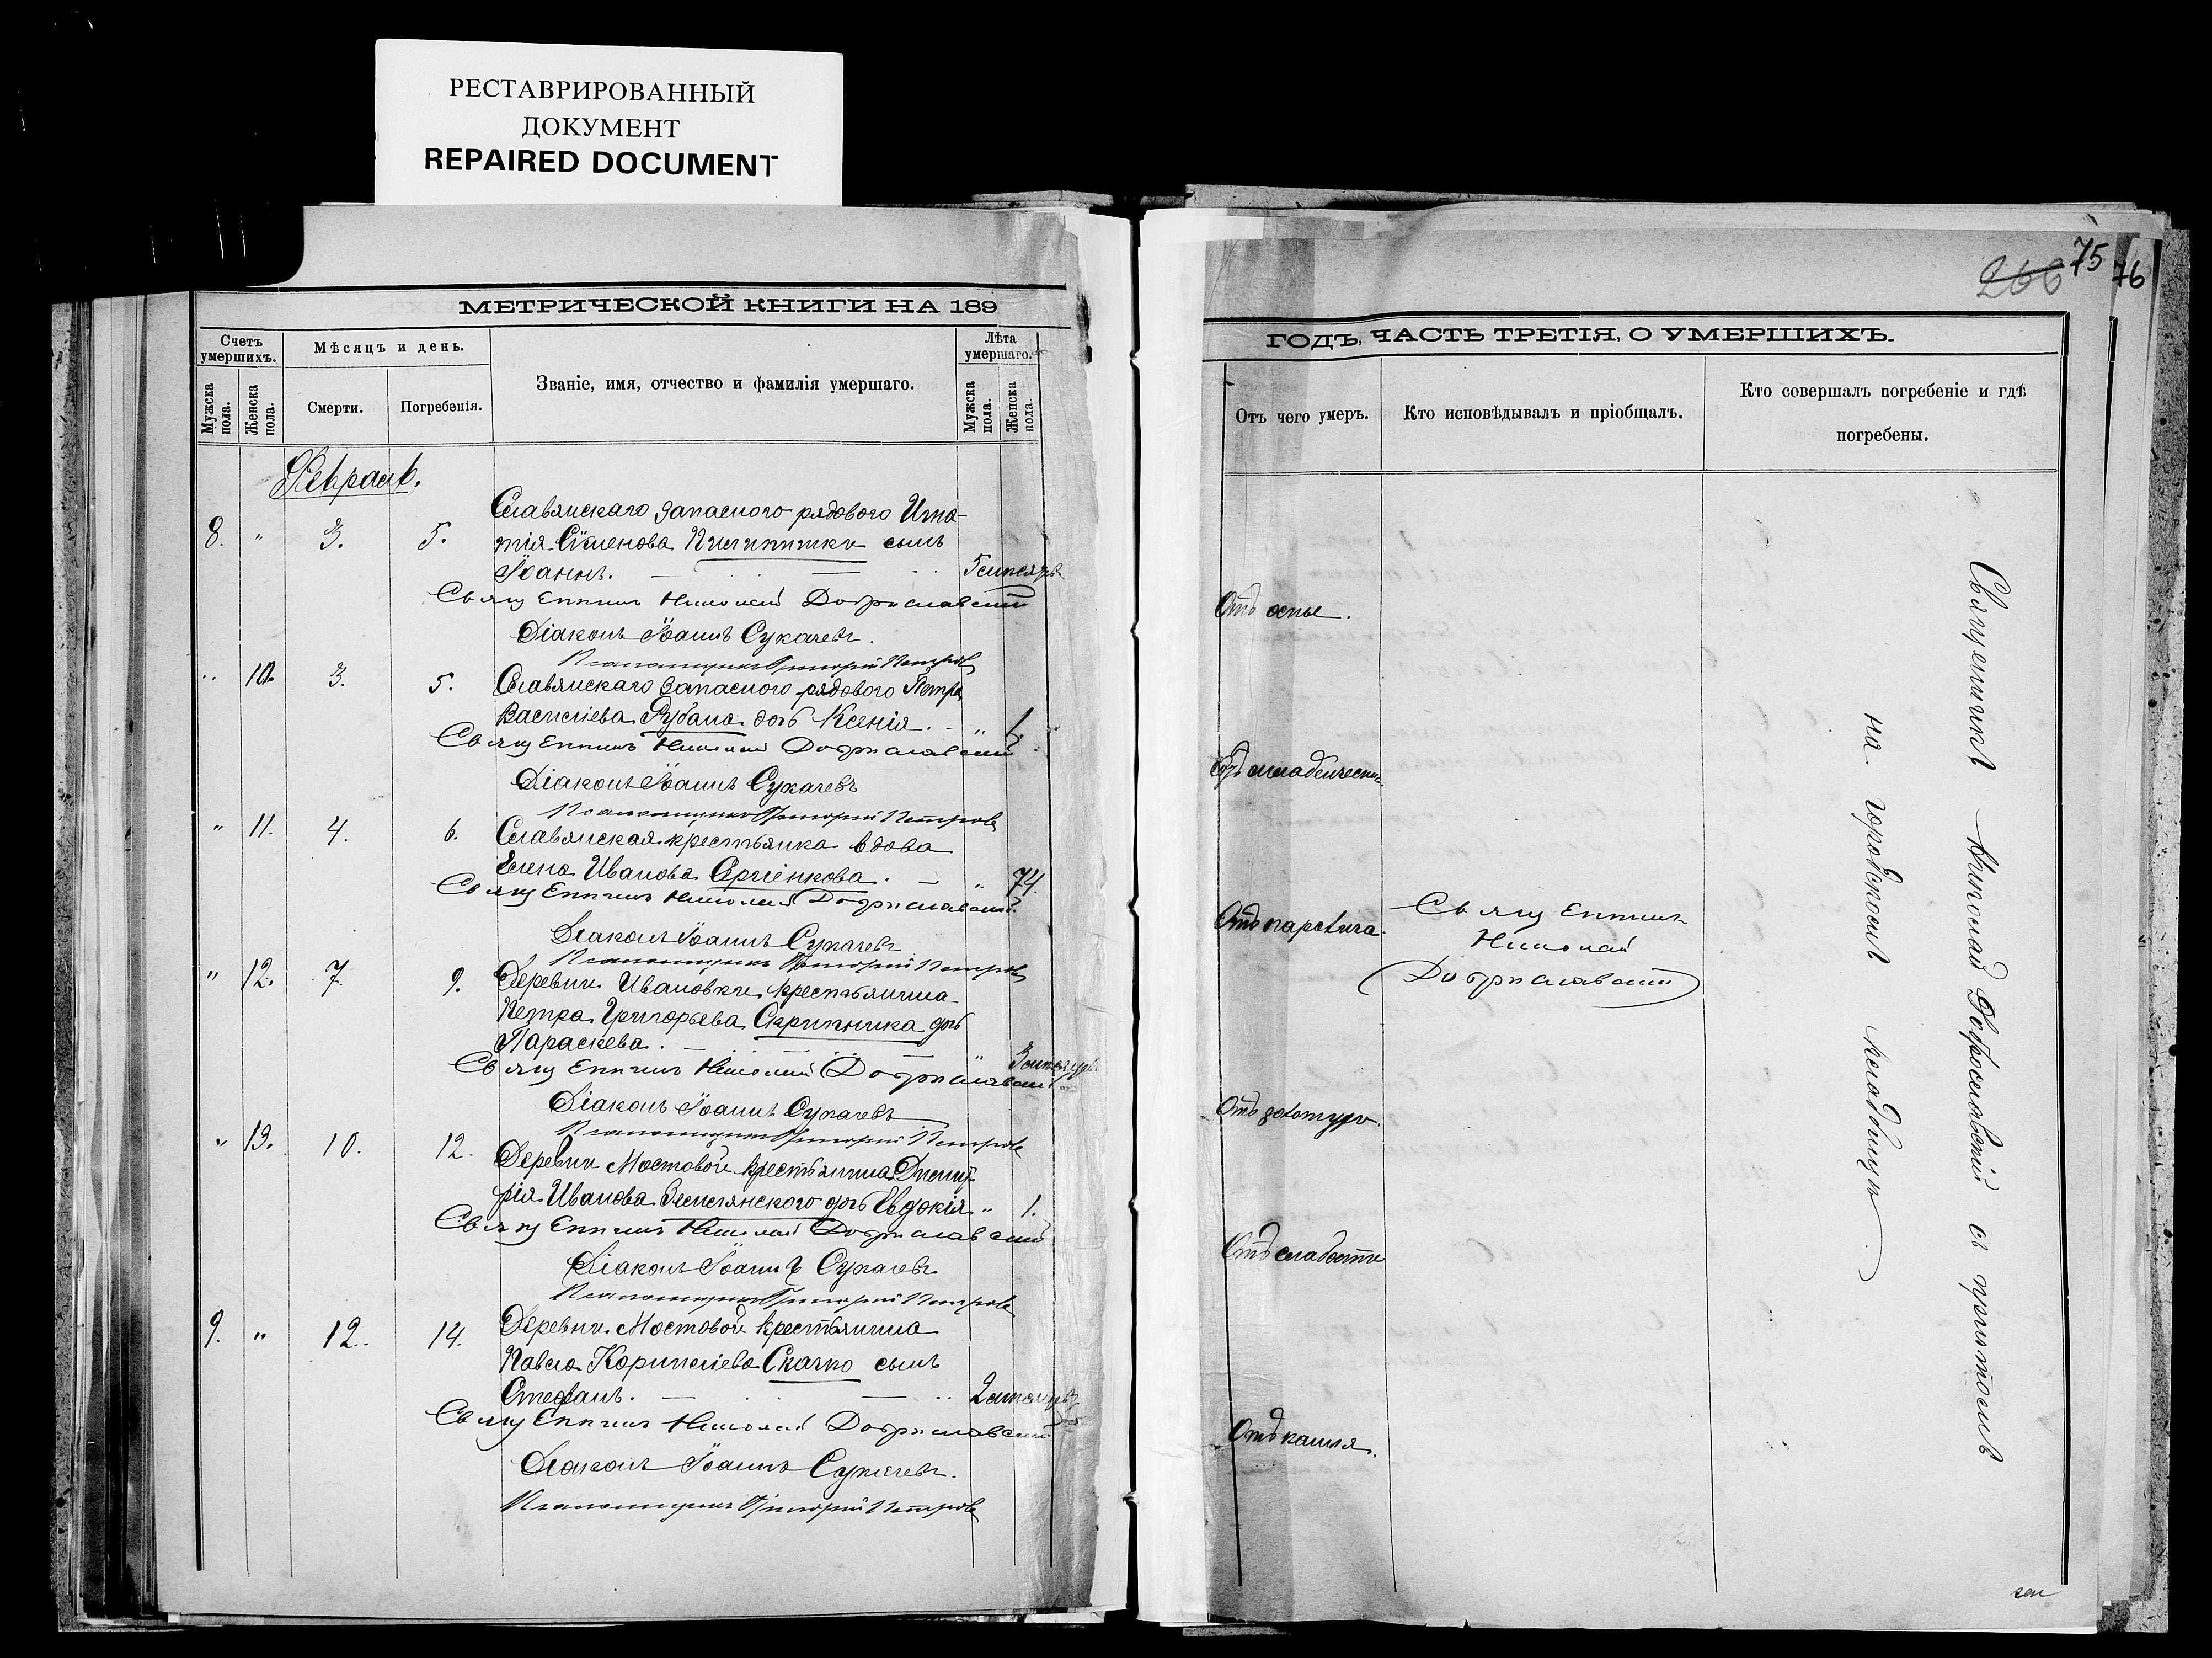 РЕСТАВРИРОВАННЫЙ
ДОКУМЕНТ
REPAIRED DOCUMENT
МЕТРИЧЕСКОЙ КНИГИ НА 189
Счетъ умершихъ.
Мужска пола.
Женска пола.
Мѣсяцъ и день.
Смерти.
Погребенія.
Званіе, имя, отчество и фамилія умершаго.
Лѣта умершаго.
Мужска пола.
Женска пола.
Февраль.
Славянскаго запасного рядового Игна-
8. " 3. 5. тія Сѵменова сынъ
Іоаннъ. 5 мѣсяцъ
Священникъ Николай Доброславскій
Діаконъ Іоаннъ Сукачевъ.
Псаломщикъ Григорій Петровъ
" 10. 3. 5. Славянскаго запасного рядового Петра
Василіева Рубана дочь Ксенія. " 1.
Священникъ Николай Доброславскій
Діаконъ Іоаннъ Сукачевъ
Псаломщикъ Григорій Петровъ
" 11. 4. 6. Славянская крестьянка вдова
Елена Иванова Сергіенкова. " 74.
Священникъ Николай Доброславскій
Діаконъ Іоаннъ Сукачевъ
Псаломщикъ Григорій Петровъ
" 12. 7. 9. Деревни Ивановки крестьянина
Петра Григорьева Скрипника дочь
Параскева. " 3 мѣсяцевъ
Священникъ Николай Доброславскій
Діаконъ Іоаннъ Сукачевъ
Псаломщикъ Григорій Петровъ
" 13. 10. 12. Деревни Мостовой крестьянина Дмит-
рія Иванова Землянского дочь Евдокія " 1.
Священникъ Николай Доброславскій
Діаконъ Іоаннъ Сукачевъ
Псаломщикъ Григорій Петровъ
9. " 12. 14. Деревни Мостовой крестьянина
Павла Корниліева Скачко сынъ
Стефанъ. 2 мѣсяцевъ
Священникъ Николай Доброславскій
Діаконъ Іоаннъ Сукачевъ.
Псаломщикъ Григорій Петровъ
266 75 76
ГОДЪ, ЧАСТЬ ТРЕТІЯ, О УМЕРШИХЪ.
Отъ чего умеръ.
Кто исповѣдывалъ и пріобщалъ.
Кто совершалъ погребеніе и гдѣ
погребены.
Отъ оспы.
Отъ младенческ.
Отъ паралича.
Священникъ
Николай
Доброславскій
Отъ золотухи.
Отъ слабости
Отъ кашля.
Священникъ Николай Доброславскій съ причтомъ
на городскомъ кладбищѣ